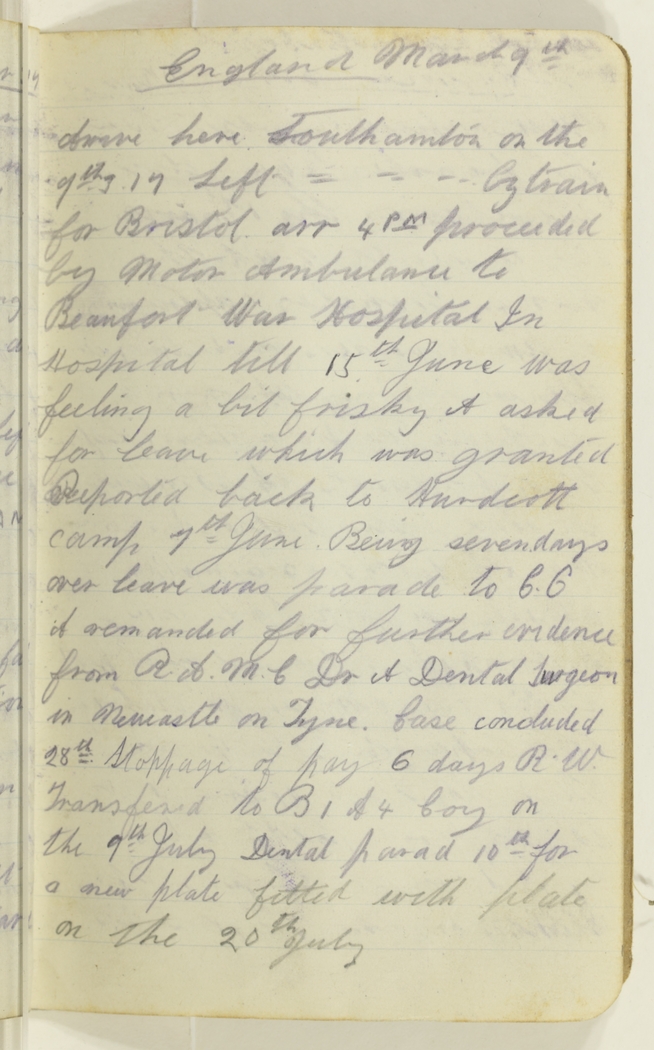 England March 9th
Arrive here Southamton on the
9th 3.17 Left = - - - by train
for Bristol. arr 4 PM proceeded
by Motor Ambulance to
Beaufort War Hospital In
Hospital till 15th June was
feeling a bit frisky & asked
for leave which was granted
Reported back to Hurdcott
camp 7th June. Being seven days
over leave was parade to C.O
& remanded for further evidence
from R.A.M.C Dr & Dental Surgeon
in Newcastle on Tyne. Case concluded
28th Stoppage of pay 6 days R.W.
Transfered to B1 A4 Coy on
the 9th July Dental parad 10th for
a new plate fitted with plate
on the 20th July